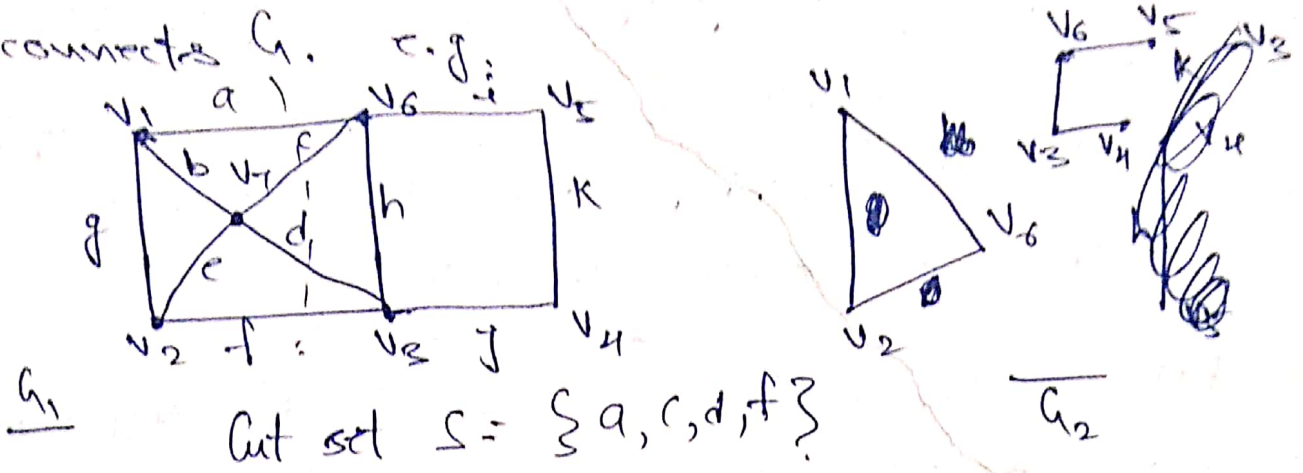 connects G. e.g:
V1 a V6 i V5
b V7 c
g d h K
e
V2 f V3 j V4
G1
Cut set S = {a, c, d, f}
V1
V6
V2
V6 V5
K V3
V3 V4 V4
G2